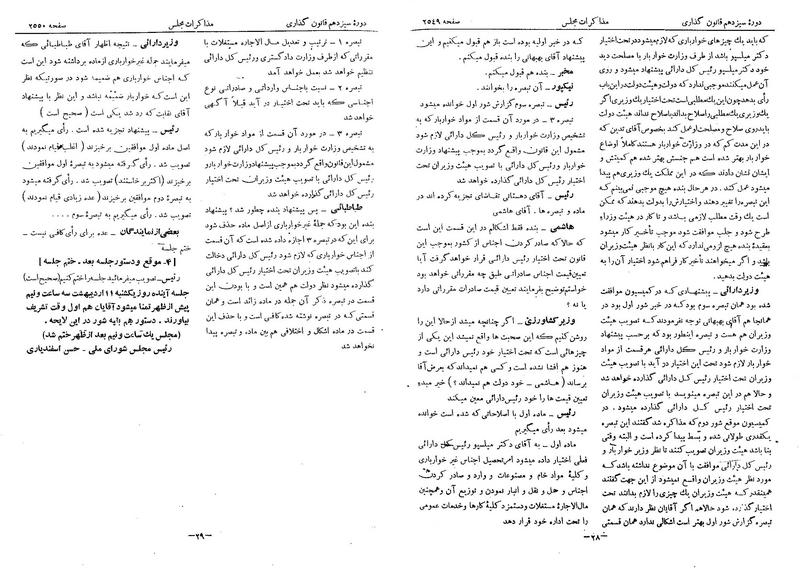 دورهٔ سیزدهم قانون گذاری
مذاکرات مجلس
صفحه ۲۵۴۹
که باید یك چیزهای خوارباری که لازم میشود در تحت اختیار
دکتر میلسپو باشد از طرف وزارت خوار بار با مصلحت دید
خود دکتر میلسپو رئیس کل دارائی پیشنهاد میشود و روی
آن عمل میکنند موجبی ندارد که دولت وهیئت دولت در این باب
رأی بدهد چون این یك مطلبی است تحت اختیار یك وزیری اگر
یك وزیری یك مطلبی را صلاح بداند یا صلاح نداند هیئت دولت
باید روی صلاح و مصلحت او عمل کند بخصوص آقای تدین که
در این مدت کم که در وزارت خواربار هستند کاملا اوضاع
خوار بار بهتر شده است هم جنسش بهتر شده هم کمیتش و
ایشان نشان دادند که در این مملکت یك وزیری هم پیدا
میشود عمل کند . در هر حال بنده هیچ موجبی نمی‌بینم که
این تبصره را تغییر دهند و اختیارش را بدولت بدهند که ممکن
است یك وقت مطلب لازمی باشد و تا کار در هیئت وزراء
طرح شود و جلب موافقت شود موجب تأخیر کار میشود
بعقیدهٔ بنده هیچ لزومی ندارد که این کار با نظر هیئت وزیران
باشد و اگر میخواهند تأخیر کار فراهم شود اختیار آن را به
هیئت دولت بدهید .
وزیر دارائی ــ پیشنهادی که در کمیسیون موافقت
شده بود همان تبصره سوم بود که در خبر شور اول بود در
همانجا هم آقای بهبهانی توجه نفرمودند که تصویب هیئت
وزیران هم هست و تبصره اینطور بود که برحسب پیشنهاد
وزارت خواربار و رئیس کل دارائی هرقسمت از مواد
خوار بار لازم شود تحت این اختیار در آید با تصویب هیئت
وزیران تحت اختیار رئیس کل دارائی گذارده خواهد شد
و حالا هم در این تبصره مینویسد با تصویب هیئت وزیران
تحت اختیار رئیس کل دارائی گذارده میشود . در
کمیسیون موقع شور دوم که مذاکره شد گفتند این تبصره
یکقدری طولانی شده و بسط پیدا کرده است و البته وقتی
بنا باشد هیئت وزیران تصویب کنند تا نظر وزیر خوار بار و
رئیس کل دارائی موافقت با آن موضوع نداشته باشد که
مورد نظر هیئت وزیران واقع نمیشود از این جهت گفتند
همینقدر که هیئت وزیران یك چیزی را لازم بدانند تحت
اختیار گذارده شود حالا هم اگر آقایان نظر دارند که همان
تبصره گزارش شور اول بهتر است اشکالی ندارد همان قسمتی
که در خبر اولیه بوده است باز هم قبول میکنیم و این
پیشنهاد آقای بهبهانی را بنده قبول میکنم .
مخبر ــ بنده هم قبول میکنم .
نیکپور ــ آن تبصره را بخوانند .
رئیس ــ تبصره سوم گزارش شور اول خوانده میشود
تبصره ۳ ــ در مورد آن قسمت از مواد خواربار که به
تشخیص وزارت خواربار و رئیس کل دارائی لازم شود
مشمول این قانون واقع گردد بموجب پیشنهاد وزارت
خواربار و رئیس کل دارائی با تصویب هیئت وزیران تحت
اختیار رئیس کل دارائی گذارده خواهد شد
رئیس ــ آقای دهستانی تقاضای تجزیه کرده اند در
ماده و تبصره ها . آقای هاشمی
هاشمی ــ بنده فقط اشکالم در این قسمت این است
که حالا که صادر کردن اجناس از کشور بموجب این
قانون تحت اختیار رئیس دارائی قرار خواهد گرفت آیا
تعیین قیمت اجناس صادراتی طبق چه مقرراتی خواهد بود
خواستم توضیح بفرمایند تعیین قیمت صادرات مقرراتی دارد
یا نه ؟
وزیر کشاورزی ــ اگر چنانچه میشد از حالا این را
روشن کنیم که این صحبت ها واقع نمیشد این یکی از
چیزهائی است که تحت اختیار خود رئیس دارائی است و
هنوز هم افشا نشده است و کسی هم نمیداند که بعرض آقا
برساند ( هاشمی ــ خود دولت هم نمیداند ؟ ) خیر میدهد
تعیین قیمت ها را خود رئیس دارائی معین میکند
رئیس ــ ماده اول با اصلاحاتی که شده است خوانده
میشود بعد رأی میگیریم
ماده اول ــ به آقای دکتر میلسپو رئیس کل دارائی
فعلی اختیار داده میشود امر تحصیل اجناس غیر خوارباری
و کلیهٔ مواد خام و مصنوعات و وارد و صادر کردن
اجناس و حمل و نقل و انبار نمودن و توزیع آن و همچنین
مال‌الاجارهٔ مستغلات و دستمزد کلیهٔ کارها و خدمات عمومی
را تحت اداره خود قرار دهد
ــ۲۸ــ
دورهٔ سیزدهم قانون گذاری
مذاکرات مجلس
صفحه ۲۵۵۰
تبصره ۱ ــ ترتیب و تعدیل مال الاجاره مستغلات با
مقرراتی که از طرف وزارت دادگستری و رئیس کل دارائی
تنظیم خواهد شد بعمل خواهد آمد
تبصره ۲ ــ نسبت باجناس وارداتی و صادراتی نوع
اجناسی که باید تحت اختیار در آید قبلاً آگهی
خواهد شد
تبصره ۳ ــ در مورد آن قسمت از مواد خواربار که
به تشخیص وزارت خوار بار و رئیس کل دارائی لازم شود
مشمول این قانون واقع گردد بموجب پیشنهاد وزارت خواربار و
رئیس کل دارائی با تصویب هیئت وزیران تحت اختیار
رئیس کل دارائی گذارده خواهد شد
طباطبائی ــ پس پیشنهاد بنده چطور شد ؟ پیشنهاد
بنده این بود که جملهٔ غیرخوارباری از اصل ماده حذف شود
برای این که در تبصره ۳ اجازه داده شده که آن قسمت
از اجناس خوارباری که لازم شود رئیس کل دارائی دخالت
کند با تصویب هیئت وزیران تحت اختیار رئیس کل دارائی
گذارده میشود نظر دولت هم همین است و با بودن این
قسمت در تبصره ذکر آن جمله در ماده زائد است و همان
قسمتی که در تبصره نوشته شده کافی است و با حذف این
قسمت در ماده اشکال و اختلافی هم بین ماده و تبصره پیدا
نخواهد شد
وزیر دارائی ــ نتیجه اظهار آقای طباطبائی که
میفرمایند جمله غیرخوارباری از ماده برداشته شود این است
که اجناس خوارباری هم ضمیمه شود در صورتیکه نظر
این است که خواربار ضمیمه نباشد و این نظر با پیشنهاد
آقای نقابت که رد شد یکی است ( صحیح است )
رئیس ــ پیشنهاد تجزیه شده است . رأی میگیریم به
اصل ماده اول موافقین برخیزند ( اغلب قیام نمودند )
تصویب شد . رأی گرفته میشود به تبصره اول موافقین
برخیزند (اکثر برخاستند) تصویب شد . رأی گرفته میشود
به تبصره دوم موافقین برخیزند ( عده زیادی قیام نمودند )
تصویب شد . رأی میگیریم به تبصره سوم ....
بعضی از نمایندگان ــ عده برای رأی کافی نیست .
ختم جلسه
[ ۴ــ موقع و دستور جلسه بعد ــ ختم جلسه ]
رئیس ــ تصویب میفرمائید جلسه را ختم کنیم (صحیح است)
جلسه آینده روز یکشنبه ۱۱ اردیبهشت سه ساعت و نیم
پیش از ظهر تمنا میشود آقایان هم اول وقت تشریف
بیاورند . دستور هم بقیه شور در این لایحه .
(مجلس یك ساعت و نیم بعد از ظهر ختم شد)
رئیس مجلس شورای ملی ــ حسن اسفندیاری
ــ۲۹ــ